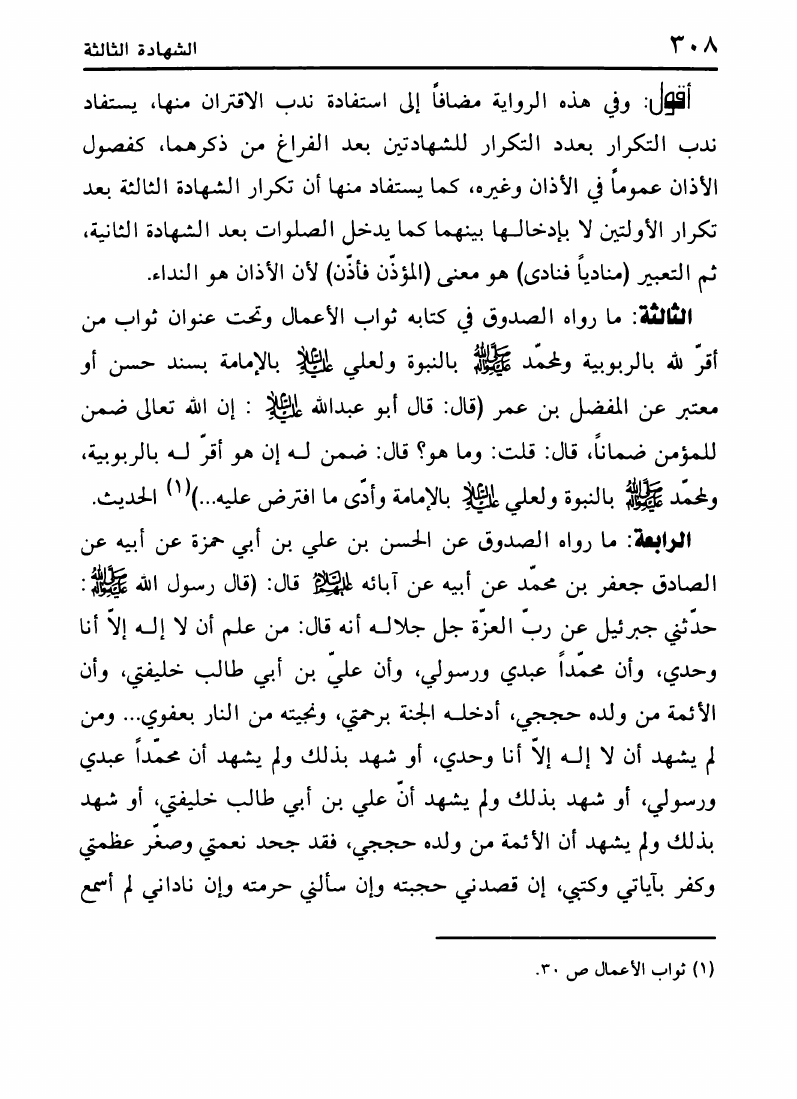 ٣٠٨
الشهادة الثالثة
أقول: وفي هذه الرواية مضافاً إلى استفادة ندب الاقتران منها، يستفاد
ندب التكرار بعدد التكرار للشهادتين بعد الفراغ من ذكرهما، كفصول
الأذان عموماً في الأذان وغيره، كما يستفاد منها أن تكرار الشهادة الثالثة بعد
تكرار الأولتين لا بإدخالها بينهما كما يدخل الصلوات بعد الشهادة الثانية،
ثم التعبير (منادياً فنادى) هو معنى (المؤذّن فأذّن) لأن الأذان هو النداء.
الثالثة: ما رواه الصدوق في كتابه ثواب الأعمال وتحت عنوان ثواب من
أقرّ لله بالربوبية ولمحمّد ﷺ بالنبوة ولعلي عليه السلام بالإمامة بسند حسن أو
معتبر عن المفضل بن عمر (قال: قال أبو عبدالله عليه السلام : إن الله تعالى ضمن
للمؤمن ضماناً، قال: قلت: وما هو؟ قال: ضمن له إن هو أقرّ له بالربوبية،
ولمحمّد ﷺ بالنبوة ولعلي عليه السلام بالإمامة وأدّى ما افترض عليه...)(١) الحديث.
الرابعة: ما رواه الصدوق عن الحسن بن علي بن أبي حمزة عن أبيه عن
الصادق جعفر بن محمّد عن أبيه عن آبائه عليهم السلام قال: (قال رسول الله ﷺ :
حدّثني جبرئيل عن ربّ العزّة جل جلاله أنه قال: من علم أن لا إله إلاّ أنا
وحدي، وأن محمّداً عبدي ورسولي، وأن عليّ بن أبي طالب خليفتي، وأن
الأئمة من ولده حججي، أدخله الجنة برحمتي، ونجيته من النار بعفوي... ومن
لم يشهد أن لا إله إلاّ أنا وحدي، أو شهد بذلك ولم يشهد أن محمّداً عبدي
ورسولي، أو شهد بذلك ولم يشهد أنّ علي بن أبي طالب خليفتي، أو شهد
بذلك ولم يشهد أن الأئمة من ولده حججي، فقد جحد نعمتي وصغّر عظمتي
وكفر بآياتي وكتبي، إن قصدني حجبته وإن سألني حرمته وإن ناداني لم أسمع
(١) ثواب الأعمال ص ٣٠.